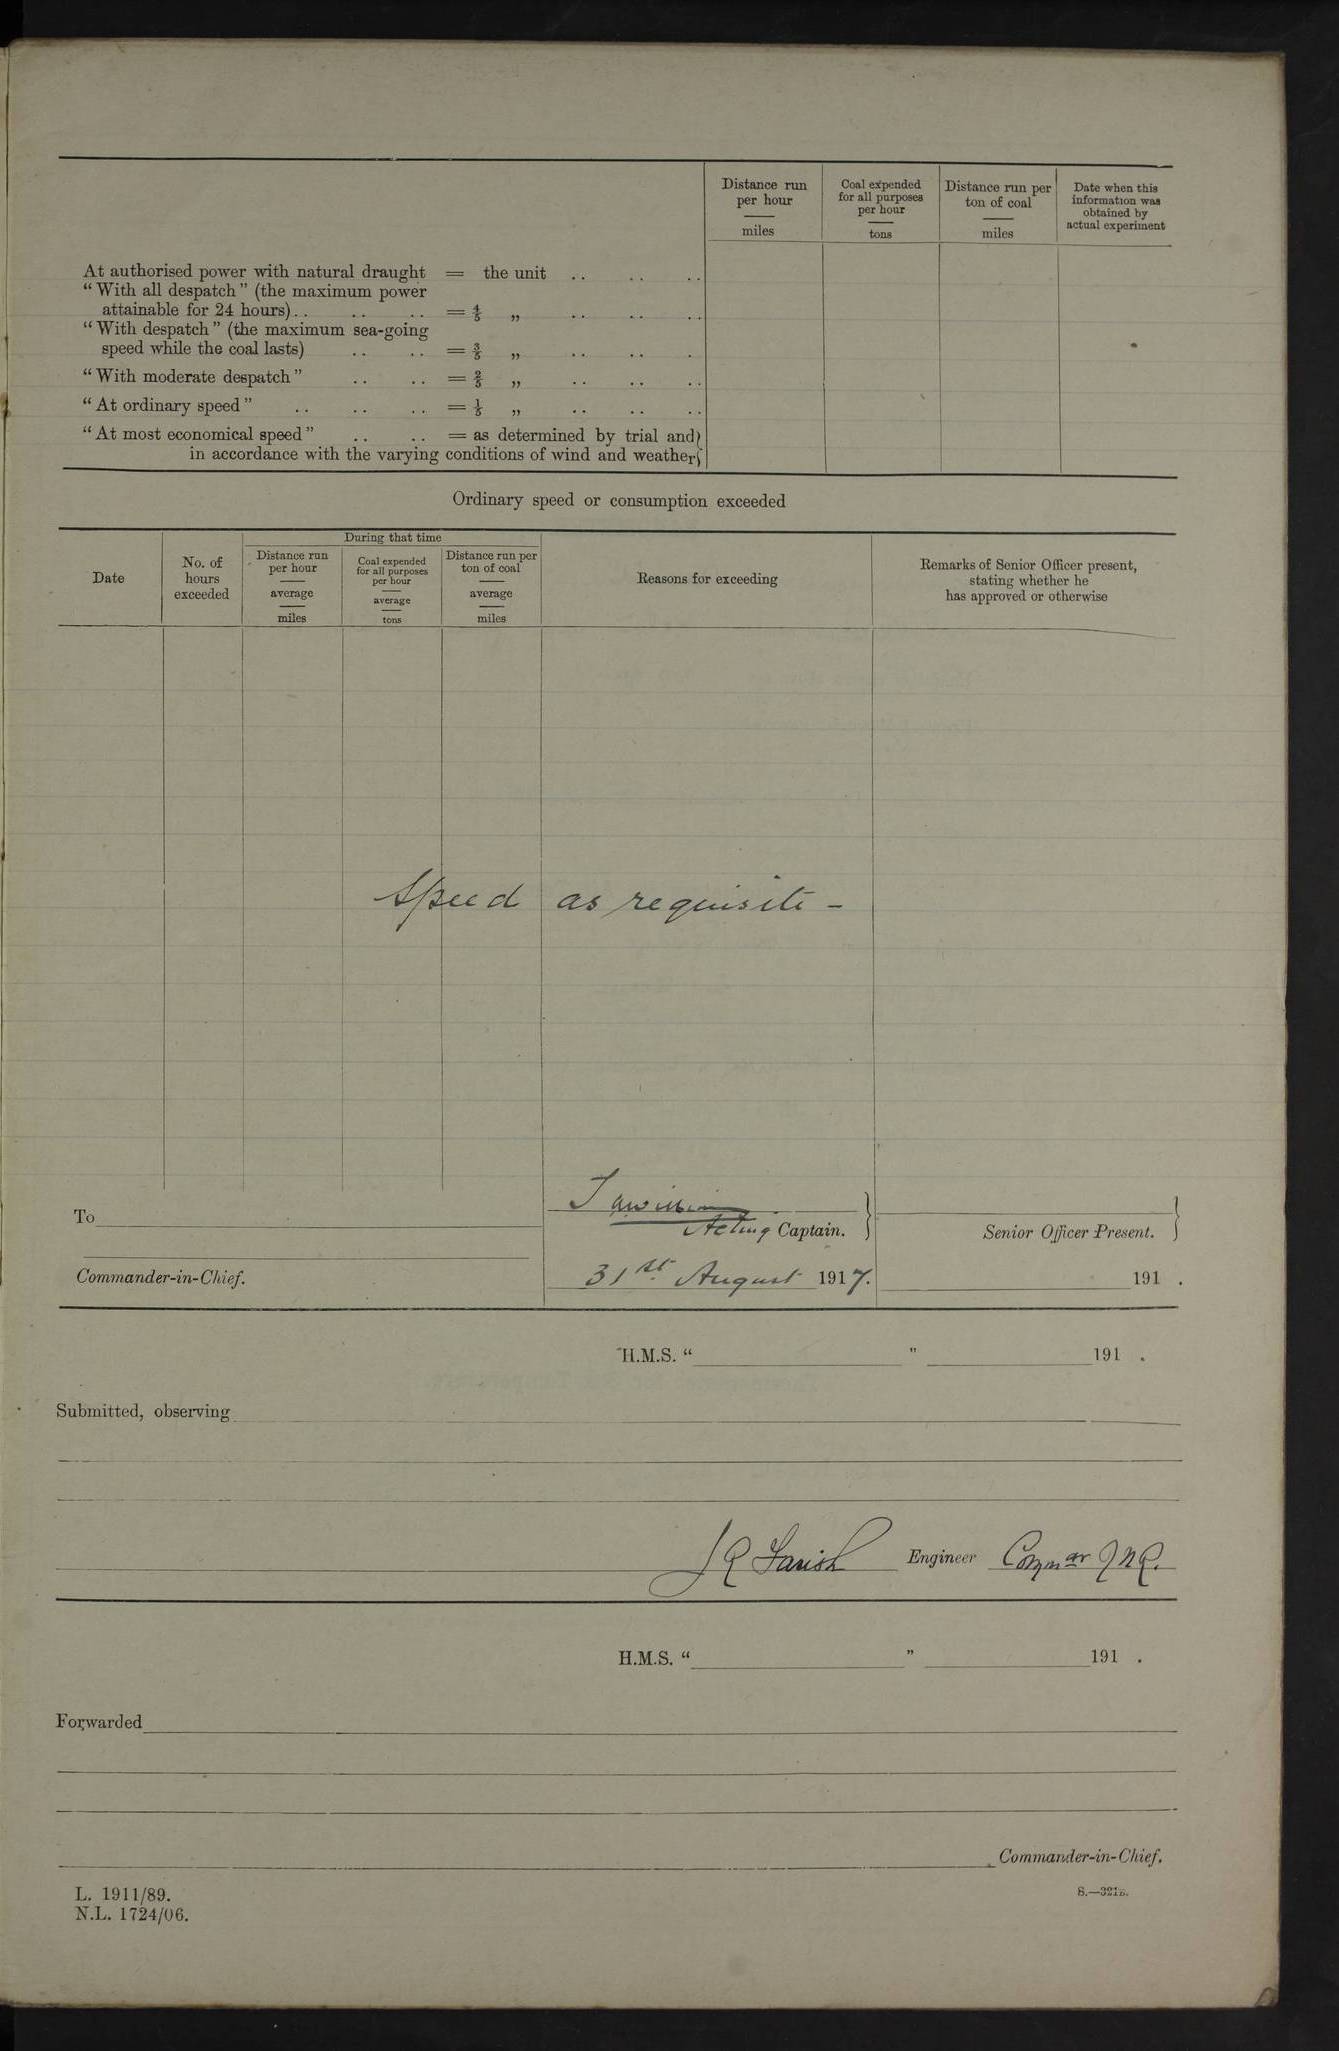 Distance run per hour miles
Coal expended for all purposes per hour tons
Distance run per ton of coal miles
Date when this information was obtained by actual experiment
At authorised power with natural draught = the unit .. .. ..
“With all despatch” (the maximum power
attainable for 24 hours) .. .. .. = 4/5 „ .. .. ..
“With despatch” (the maximum sea-going
speed while the coal lasts) .. .. = 3/5 „ .. .. .
“With moderate despatch” .. .. = 2/5 „ .. .. ..
“At ordinary speed” .. .. .. = 1/5 „ .. .. ..
“At most economical speed” .. .. = as determined by trial and
in accordance with the varying conditions of wind and weather
Ordinary speed or consumption exceeded
Date
No. of hours exceeded
During that time
Distance run per hour average miles
Coal expended for all purposes per hour average tons
Distance run per ton of coal average miles
Reasons for exceeding
Remarks of Senior Officer present,
stating whether he
has approved or otherwise
Speed as requisite -
To
Acting Captain.
Senior Officer Present.
Commander-in-Chief.
31st August 1917.
191 .
H.M.S. “ ” 191 .
Submitted, observing
J R Parish Engineer Commdr R N R.
H.M.S. “ ” 191 .
Forwarded
Commander-in-Chief.
L. 1911/89.
N.L. 1724/06.
S.—321B.